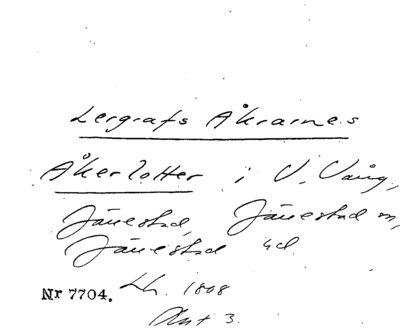 Lergrafs Åkrarnes
Åkerlotter i V. Vång,
Jänestad, Jänestad m,
Jänestad ud
Nr 7704. Lh. 1808
Akt 3.